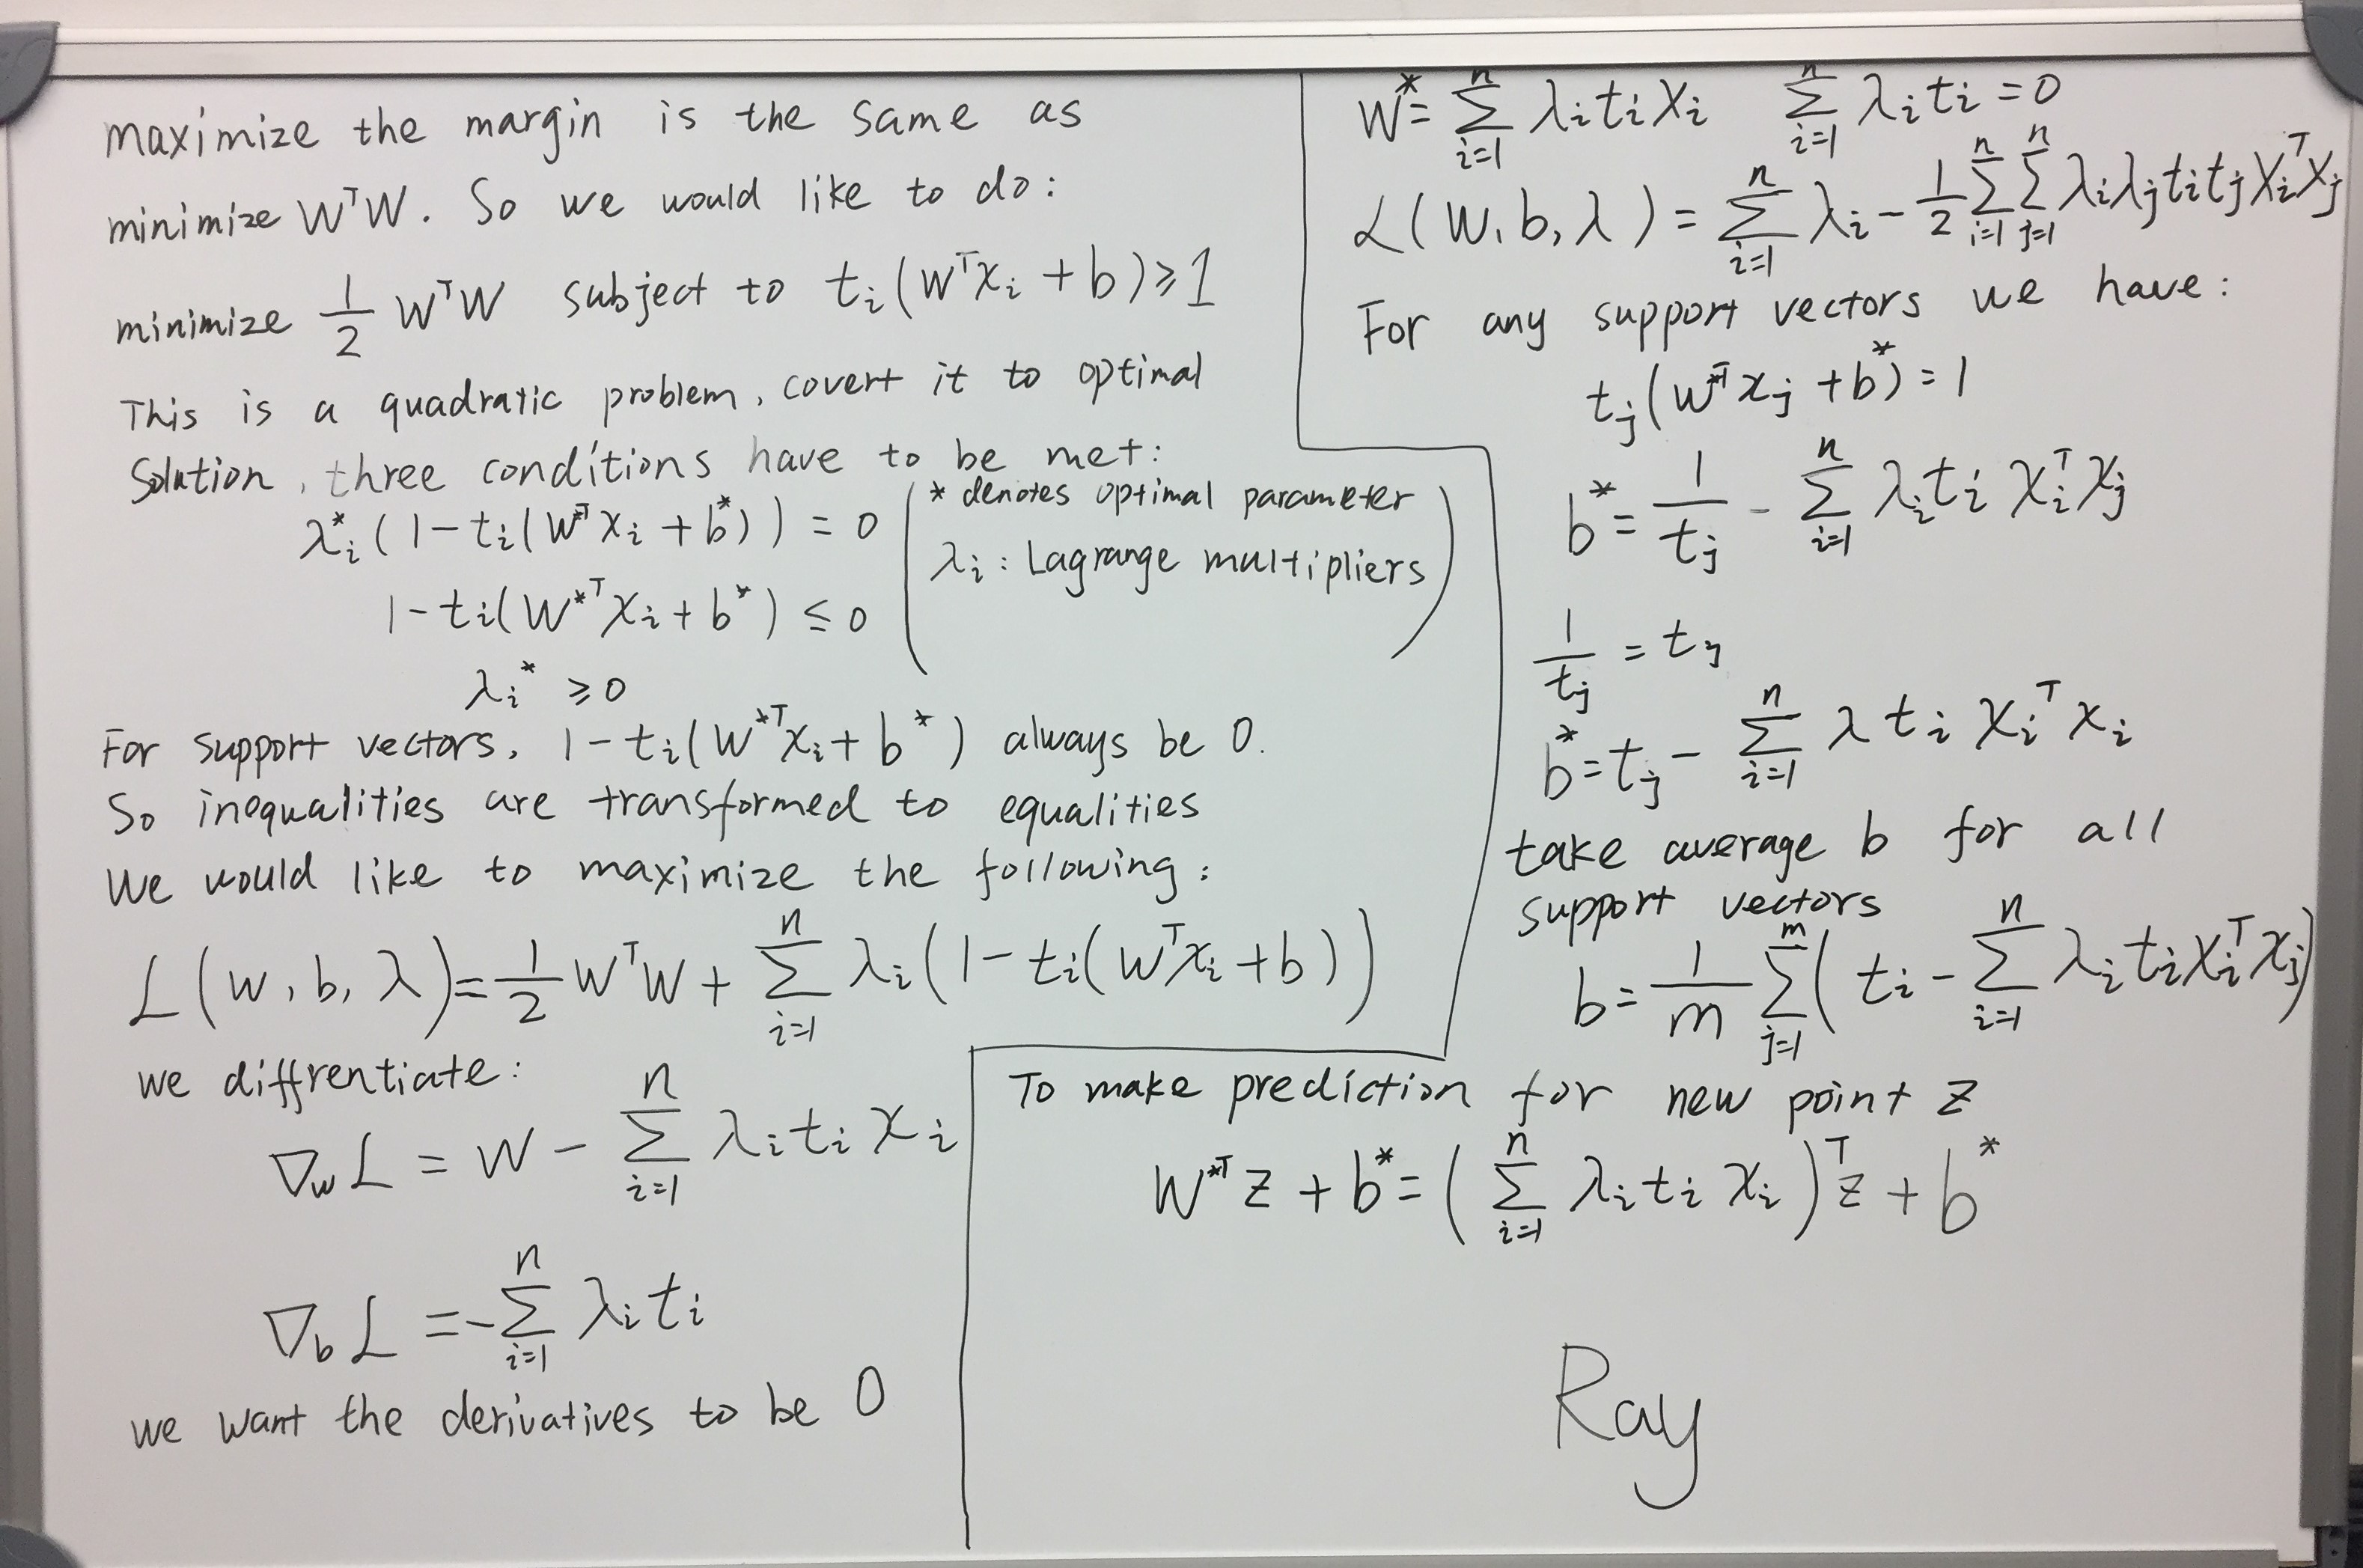 maximize the margin is the same as
minimize WᵀW. So we would like to do:
minimize 1/2 WᵀW subject to tᵢ(Wᵀxᵢ + b) ≥ 1
This is a quadratic problem, covert it to optimal
Solution, three conditions have to be met:
λᵢ*(1-tᵢ(W*ᵀxᵢ + b*)) = 0
1-tᵢ(W*ᵀxᵢ + b*) ≤ 0
λᵢ* ≥ 0
(* denotes optimal parameter
λᵢ: Lagrange multipliers)
For support vectors, 1-tᵢ(W*ᵀxᵢ + b*) always be 0.
So inequalities are transformed to equalities
We would like to maximize the following:
L(w, b, λ) = 1/2 WᵀW + Σᵢ₌₁ⁿ λᵢ(1-tᵢ(Wᵀxᵢ + b))
we diffrentiate:
∇wL = W - Σᵢ₌₁ⁿ λᵢtᵢxᵢ
∇bL = -Σᵢ₌₁ⁿ λᵢtᵢ
we want the derivatives to be 0
W* = Σᵢ₌₁ⁿ λᵢtᵢxᵢ Σᵢ₌₁ⁿ λᵢtᵢ = 0
L(W, b, λ) = Σᵢ₌₁ⁿ λᵢ - 1/2 Σᵢ₌₁ⁿ Σⱼ₌₁ⁿ λᵢλⱼtᵢtⱼxᵢᵀxⱼ
For any support vectors we have:
tⱼ(W*ᵀxⱼ + b*) = 1
b* = 1/tⱼ - Σᵢ₌₁ⁿ λᵢtᵢxᵢᵀxⱼ
1/tⱼ = tⱼ
b* = tⱼ - Σᵢ₌₁ⁿ λtᵢxᵢᵀxᵢ
take average b for all
support vectors
b = 1/m Σⱼ₌₁ᵐ(tᵢ - Σᵢ₌₁ⁿ λᵢtᵢxᵢᵀxⱼ)
To make prediction for new point z
W*ᵀz + b* = (Σᵢ₌₁ⁿ λᵢtᵢxᵢ)ᵀz + b*
Ray